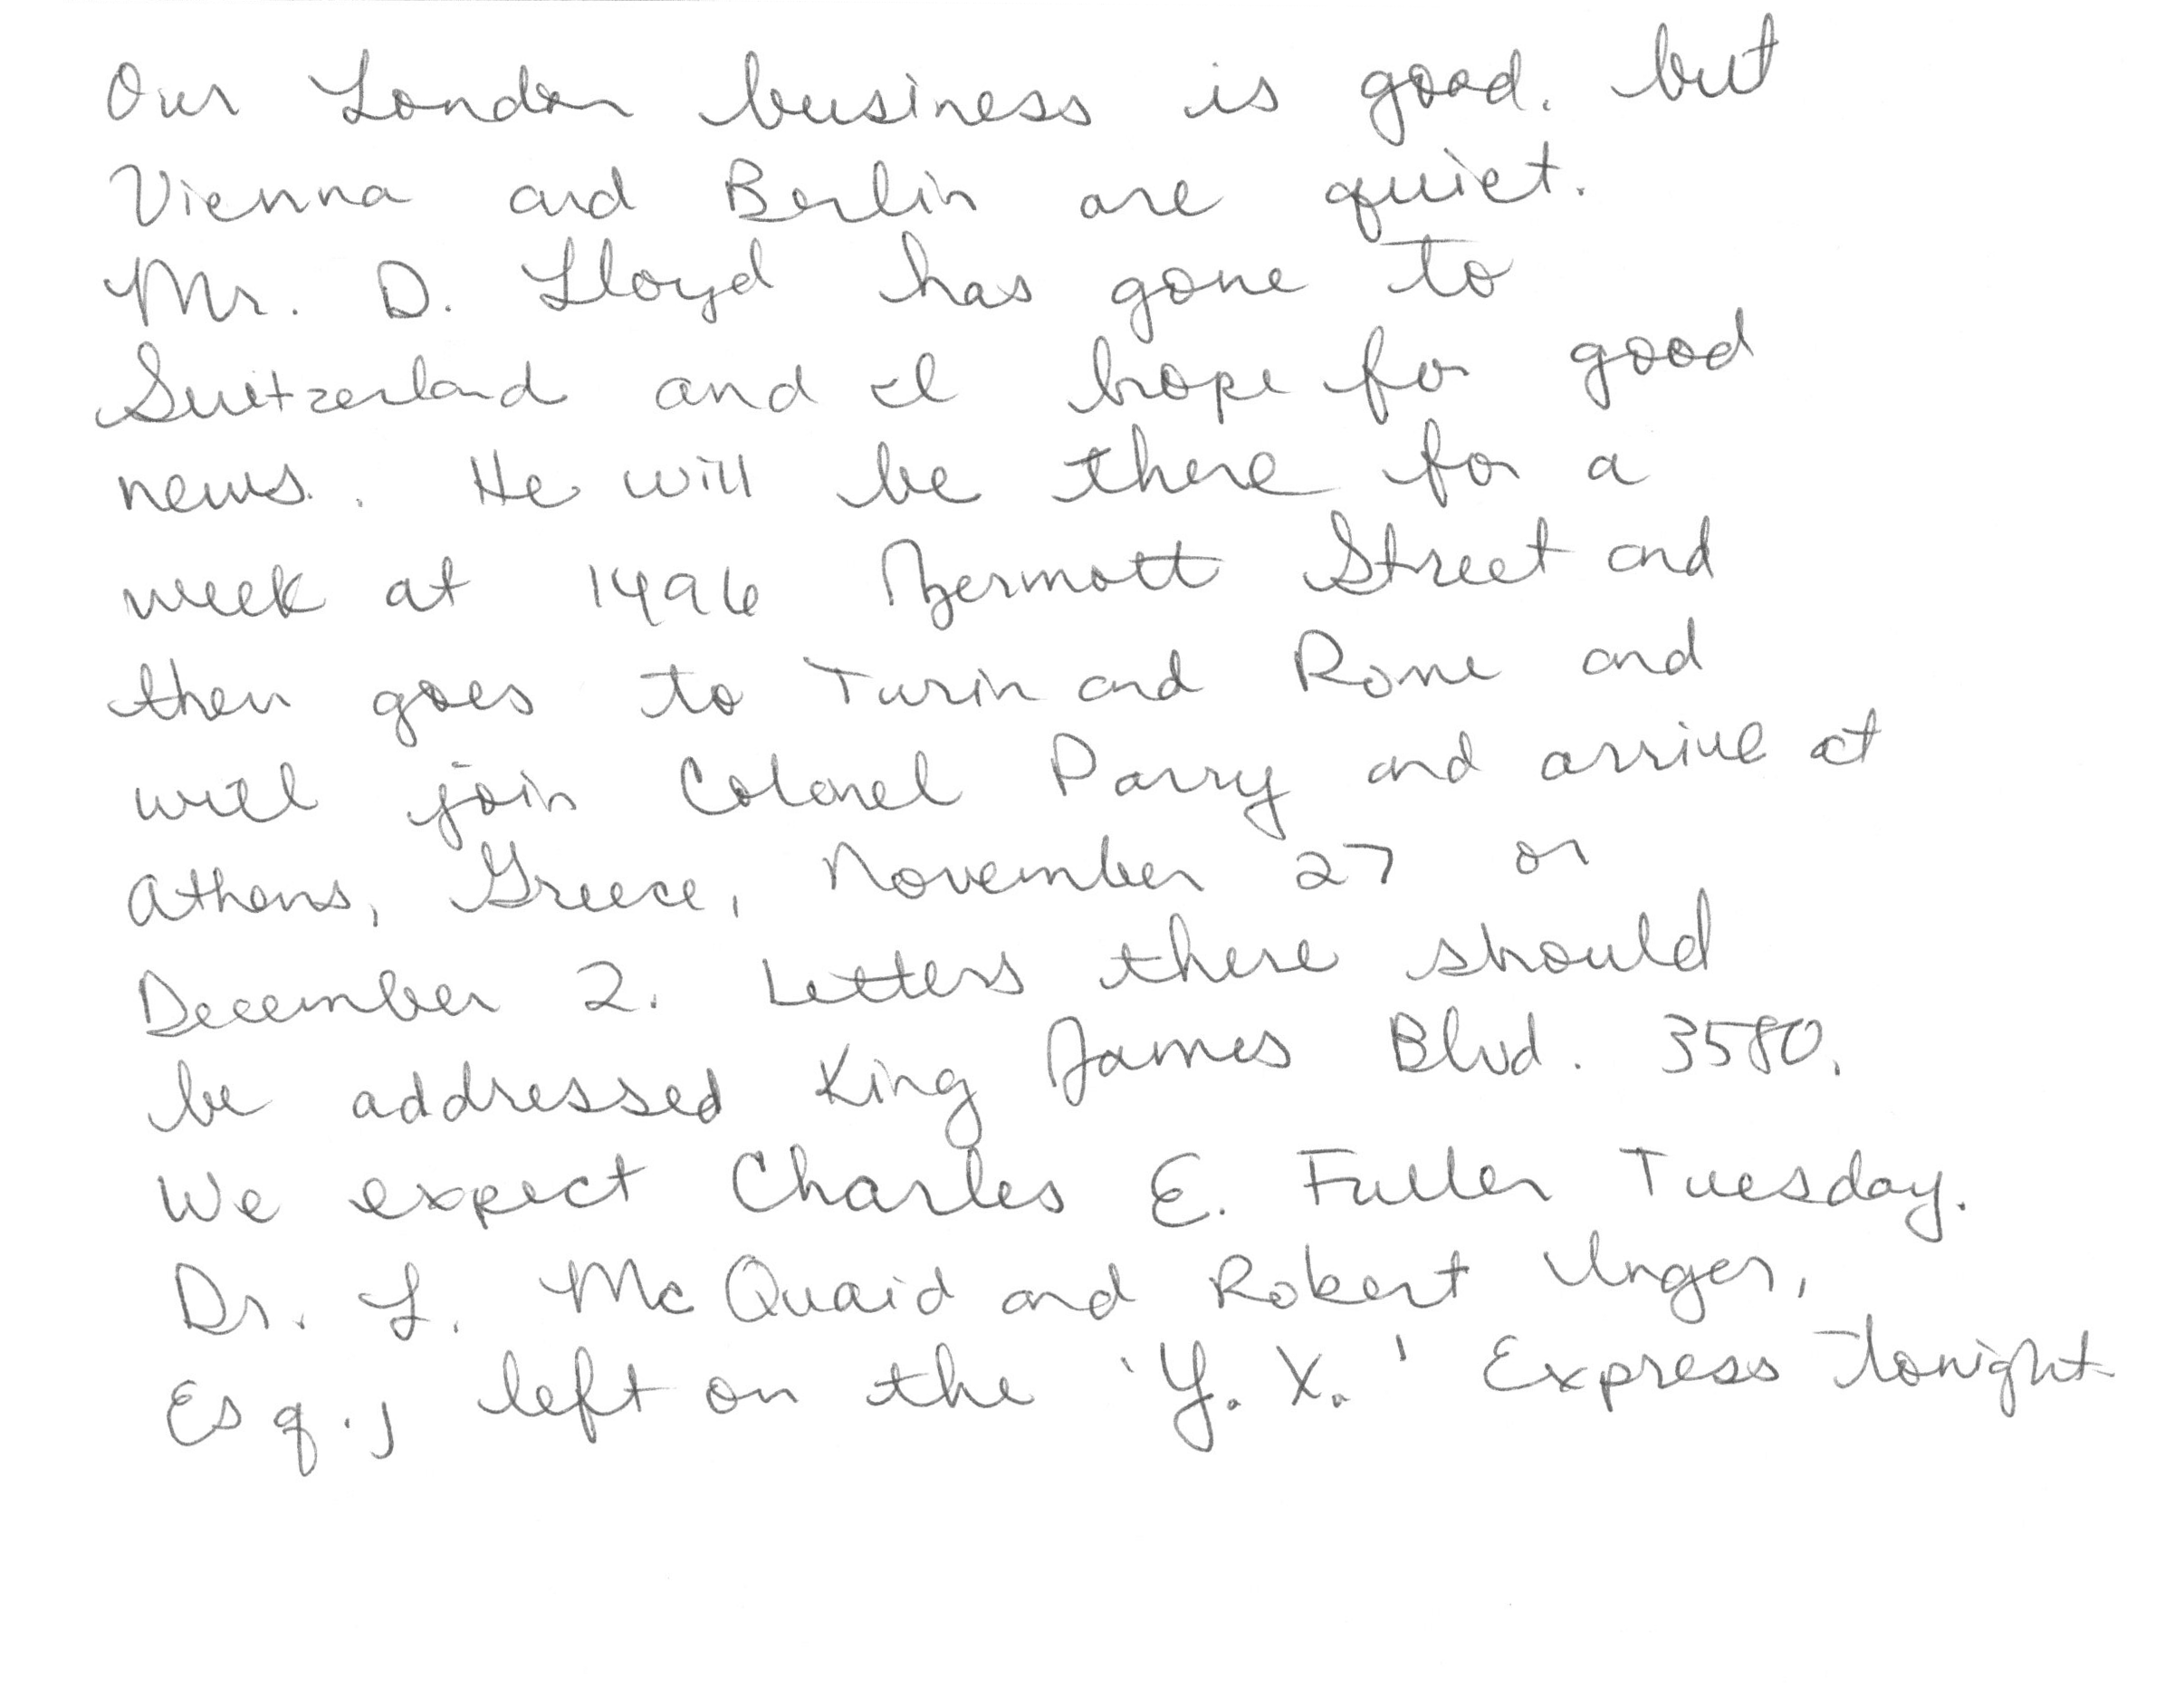 Our London business is good. but
Vienna and Berlin are quiet.
Mr. D. Lloyd has gone to
Switzerland and I hope for good
news. He will be there for a
week at 1496 Zermott Street and
then goes to Turin and Rome and
will join Colonel Parry and arrive at
Athens, Greece, November 27 or
December 2. Letters there should
be addressed King James Blvd. 3580.
We expect Charles E. Fuller Tuesday.
Dr. L. McQuaid and Robert Unger,
Esq., left on the 'Y. X.' Express tonight